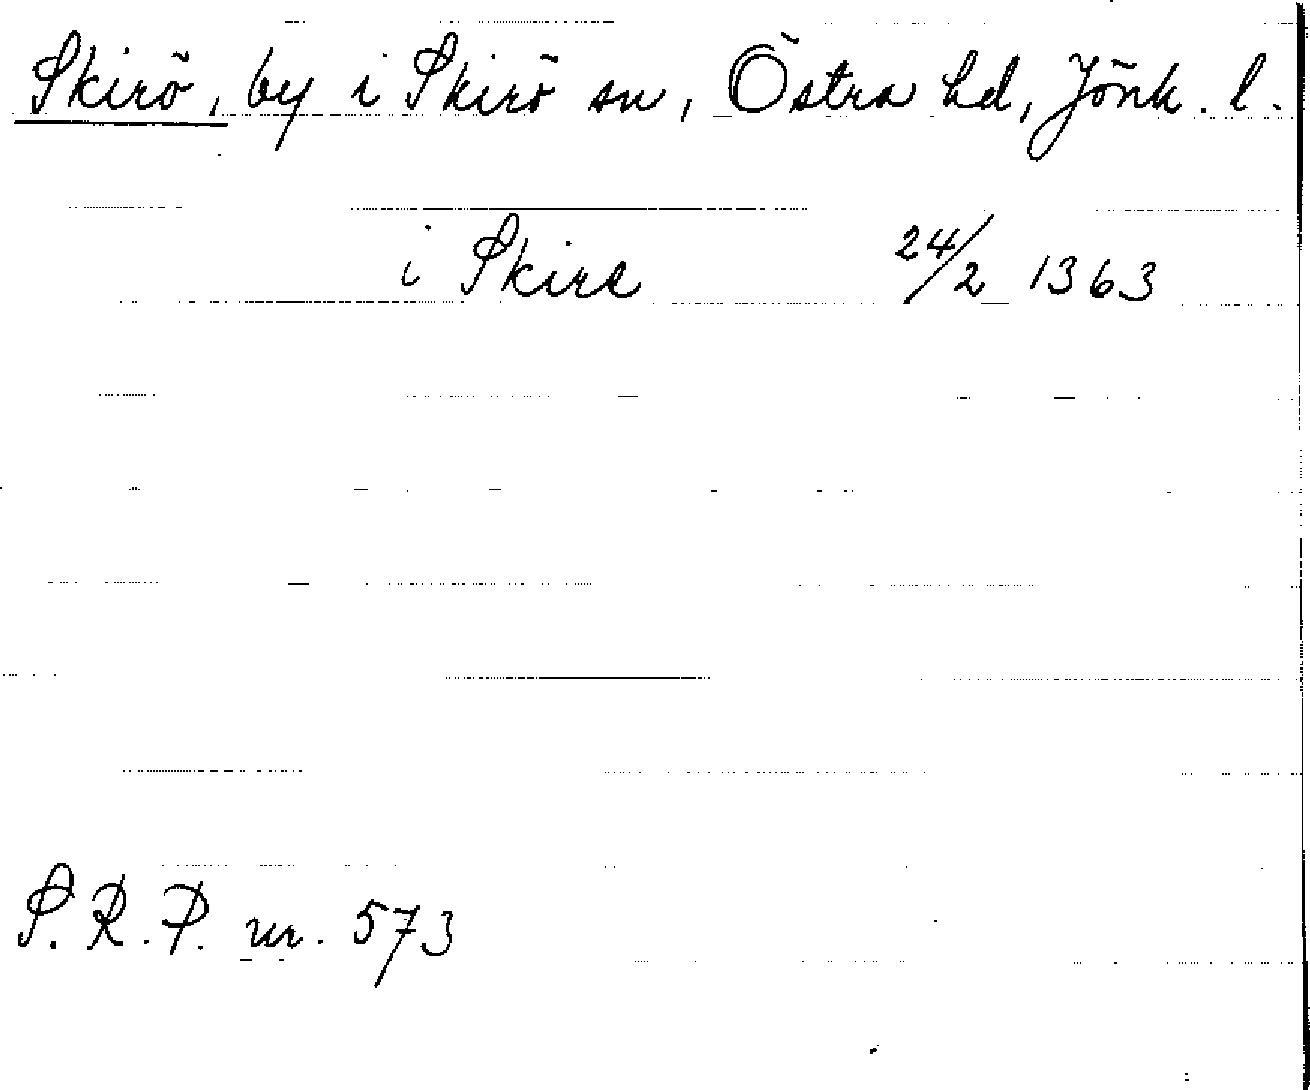 Skirö, by i Skirö sn, Östra hd, Jönk. l.
i Skire 24/2 1363
S.R.P. nr. 573